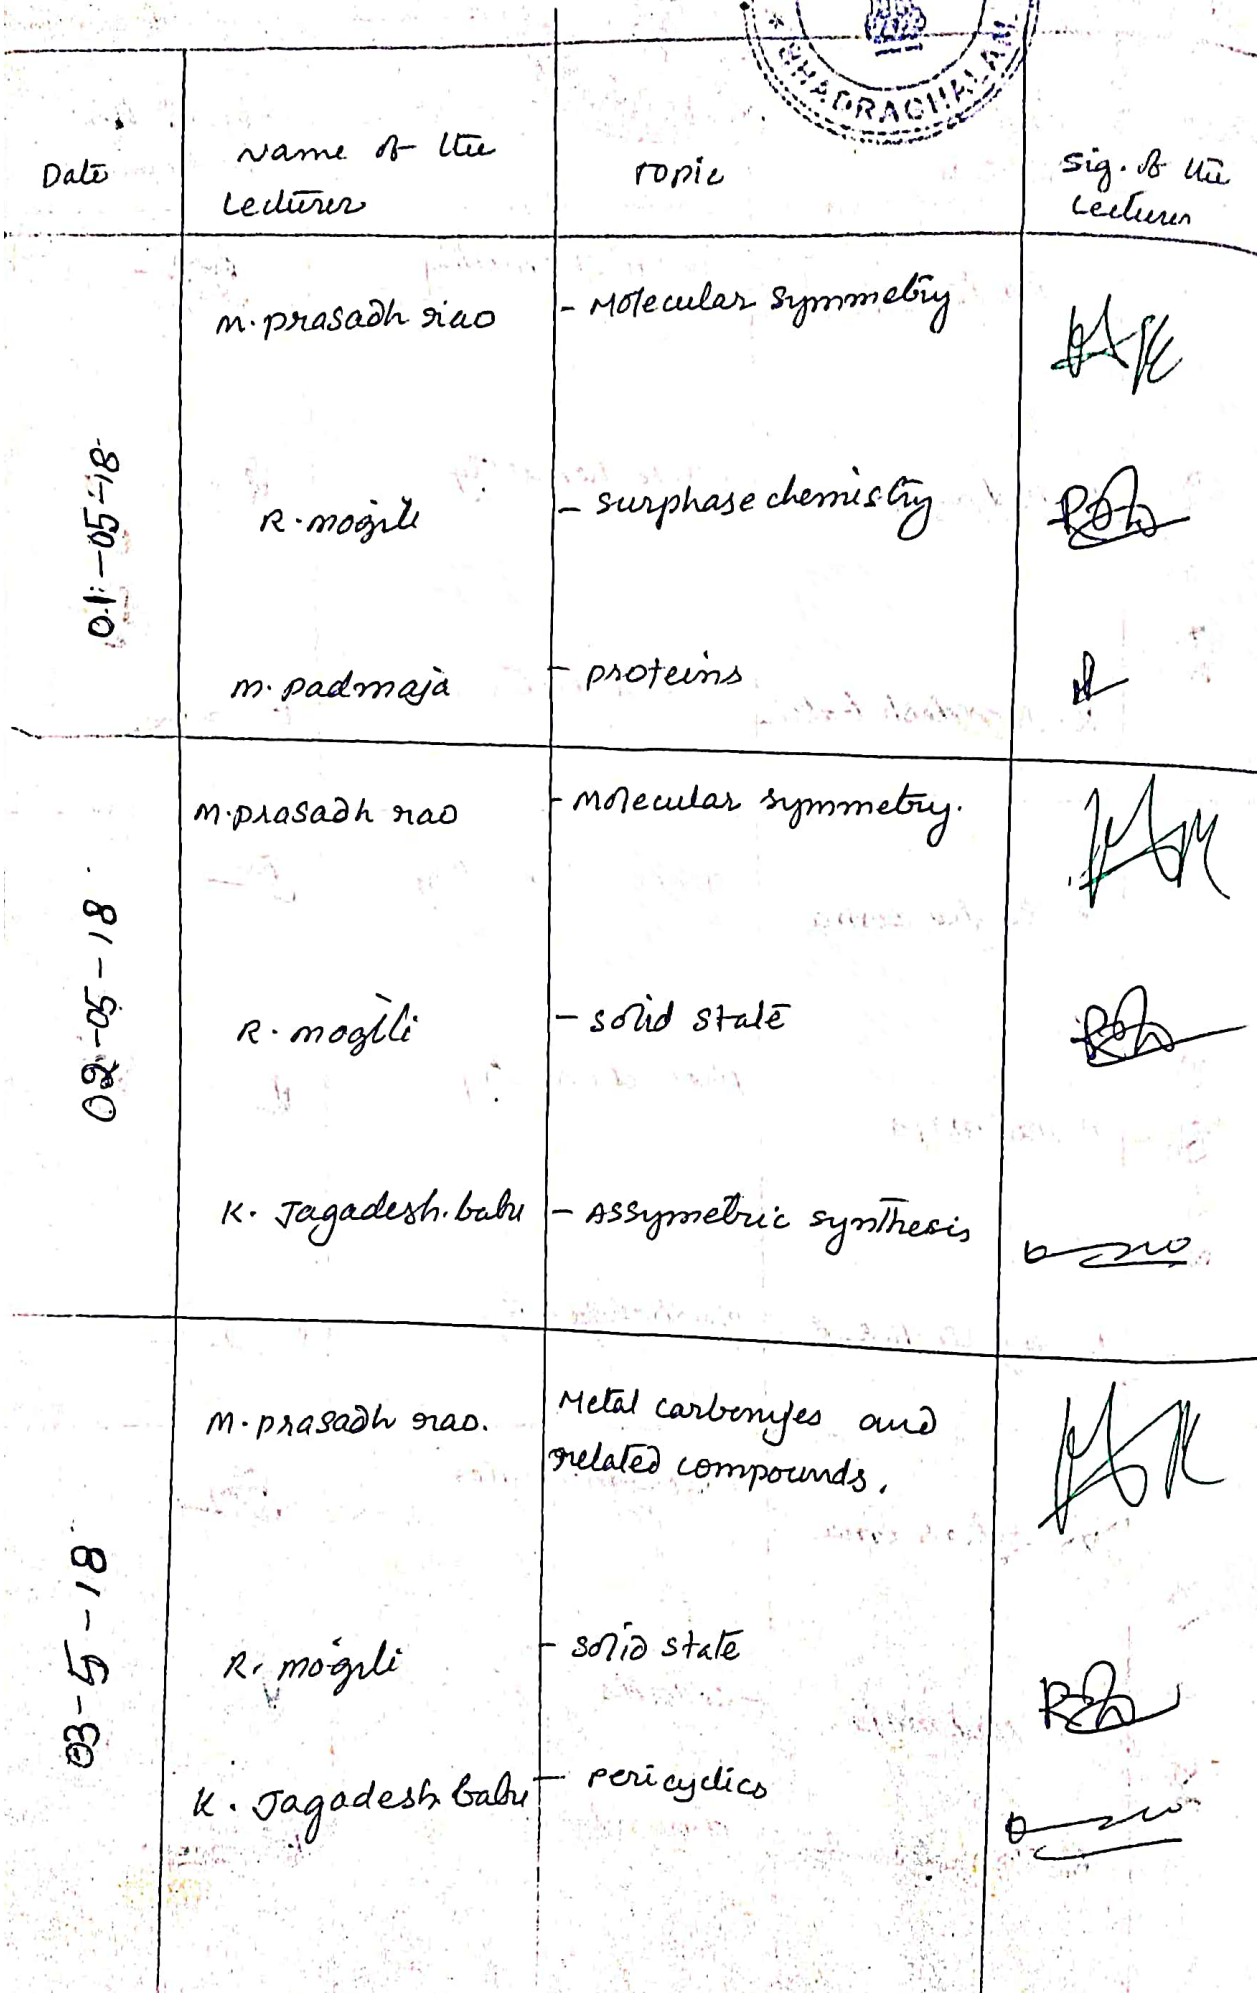 BHADRACHALAM
Date
Name of the
Lecturer
Topic
Sig. of the
Lecturer
01-05-18
M. prasadh rao
- Molecular symmetry
R. mogili
- surphase chemistry
M. padmaja
- proteins
02-05-18
M. prasadh rao
- Molecular symmetry.
R. mogili
- solid state
K. Jagadesh. babu
- Assymetric synthesis
03-5-18
M. prasadh rao.
Metal carbonyles and
related compounds.
R. mogili
- solid state
K. Jagadesh babu
- pericyclics